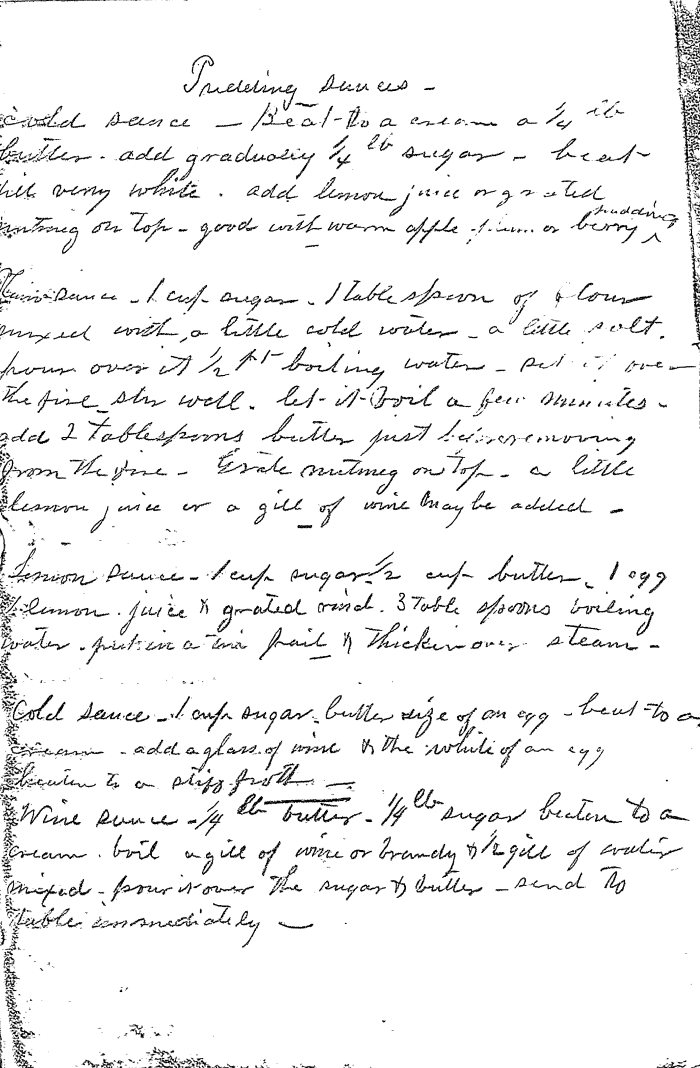 Pudding sauces -
Cold sauce - Beat to a cream a 1/4 lb
butter - add gradually 1/4 lb sugar - beat
till very white. add lemon juice or grated
nutmeg on top - good with warm apple plum or berry pudding
sauce - 1 cup sugar - 1 table spoon of flour
mixed with a little cold water - a little salt.
pour over it 1/2 pt boiling water - set it over
the fire stir well. let it boil a few minutes -
add 2 tablespoons butter just before removing
from the fire - Grate nutmeg on top - a little
lemon juice or a gill of wine may be added -
Lemon sauce - 1 cup sugar 1/2 cup butter - 1 egg
lemon - juice & grated rind. 3 table spoons boiling
water - put in a tin pail & thicken over steam -
Cold sauce - 1 cup sugar - butter size of an egg - beat to a
cream - add a glass of wine & the white of an egg
beaten to a stiff froth -
Wine sauce - 1/4 lb butter - 1/4 lb sugar beaten to a
cream. boil a gill of wine or brandy & 1/2 gill of water
mixed - pour it over the sugar & butter - send to
table immediately -